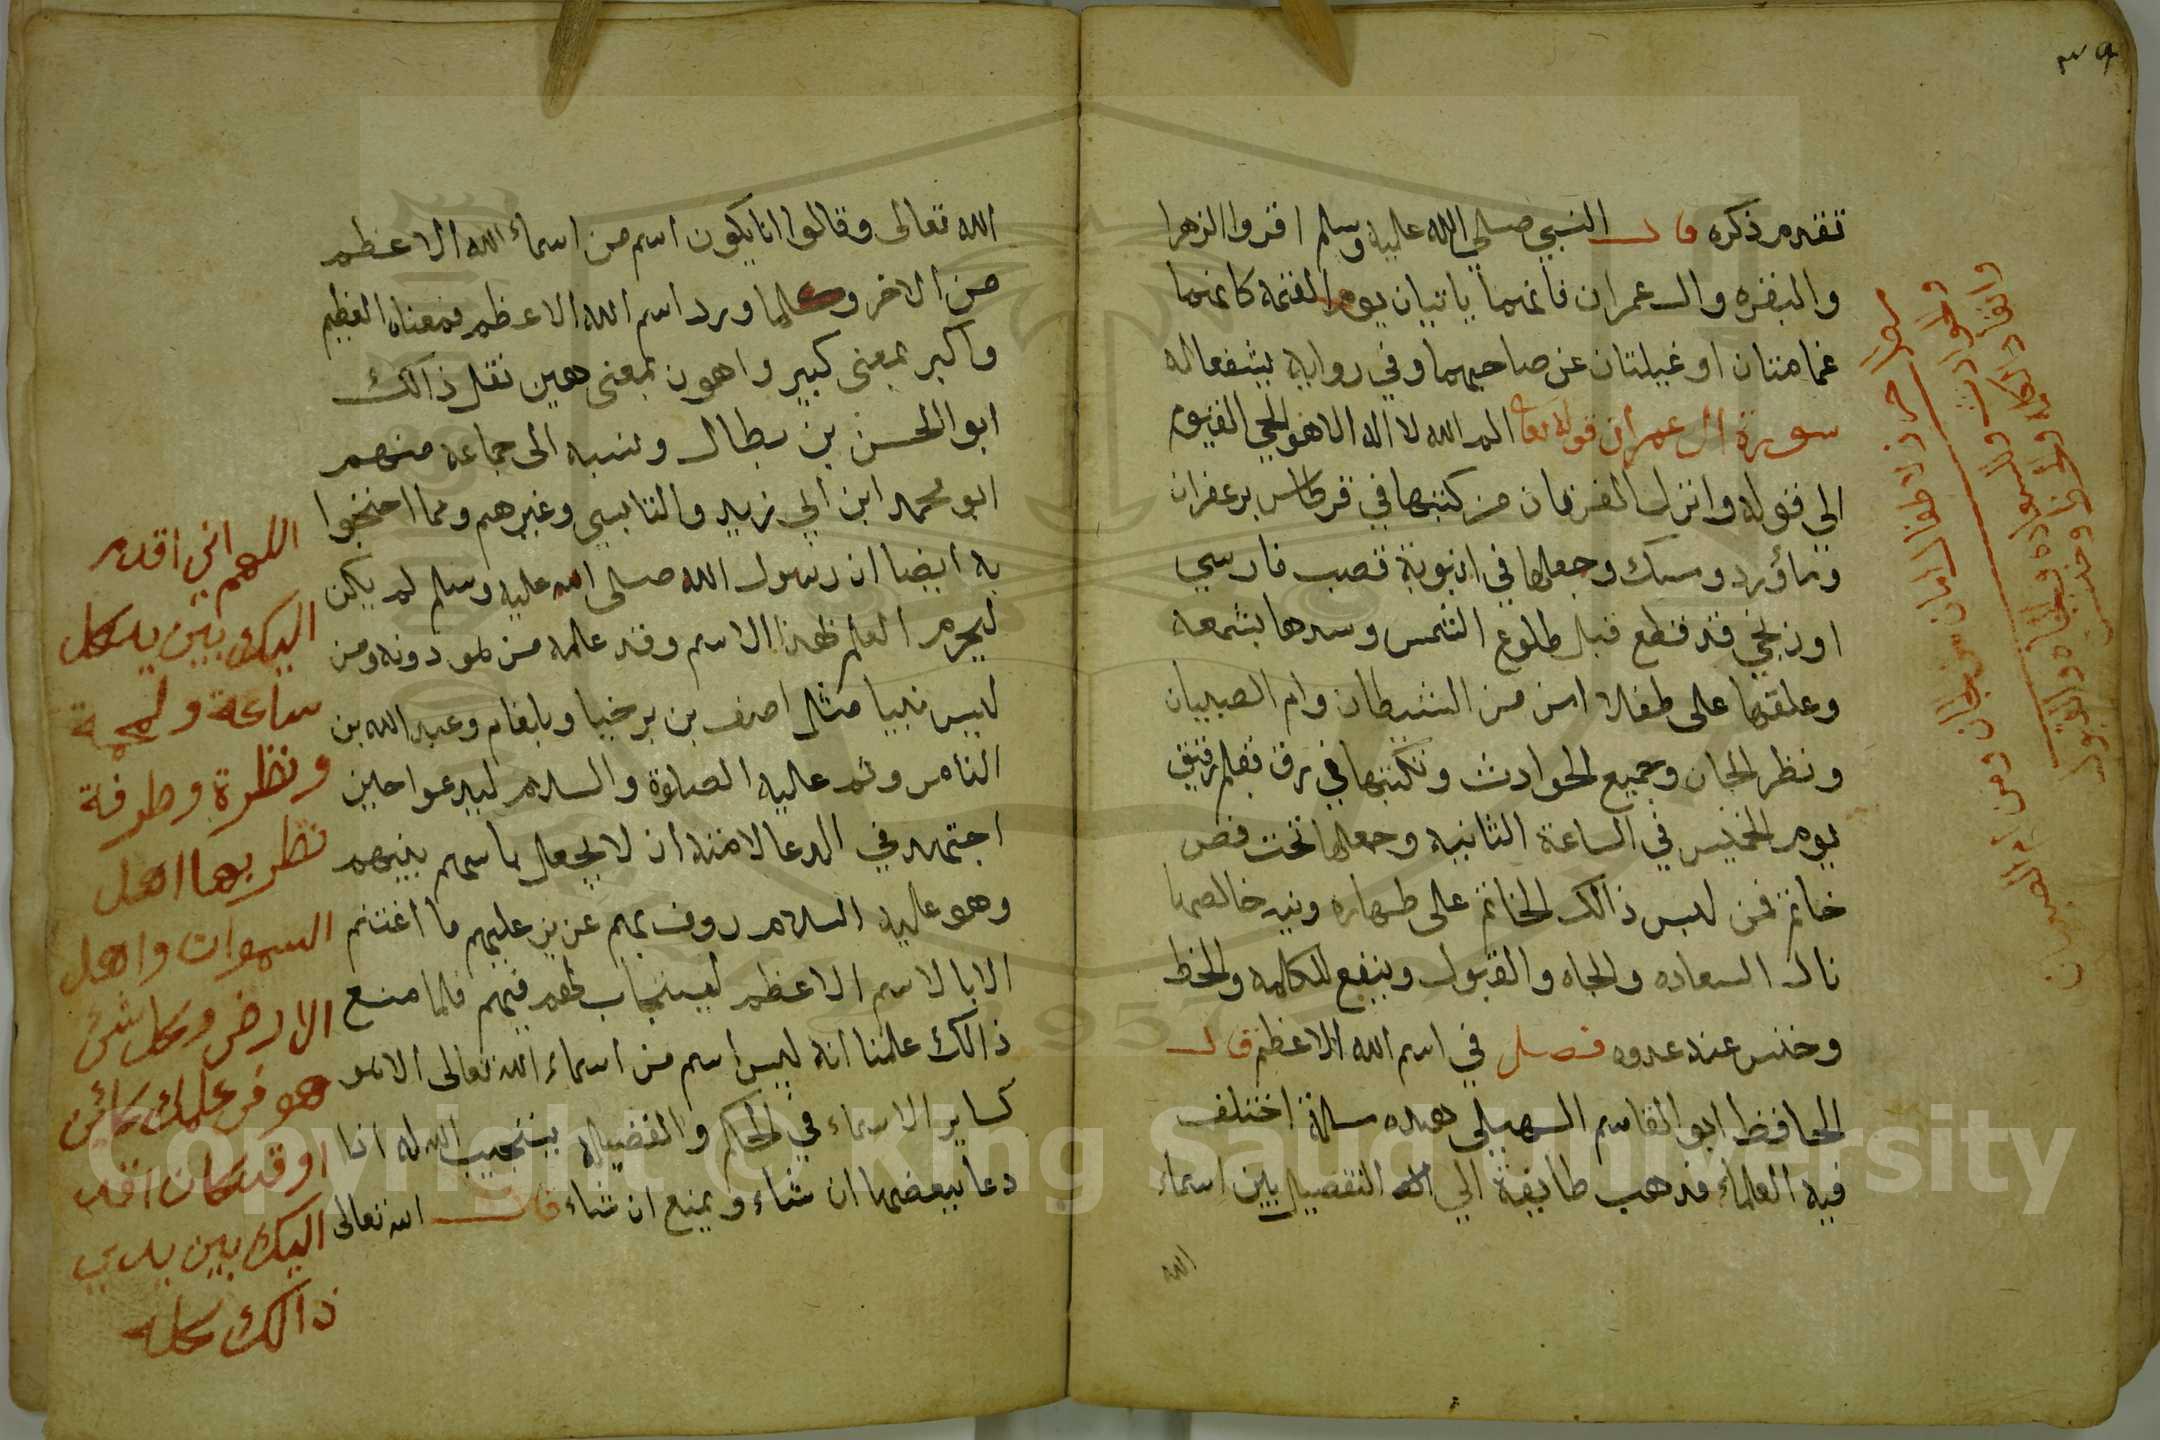 ٣٩
تقدم ذكره قال النبي صلى الله عليه وسلم اقروا الزهرا
والبقره وال عمران فانهما ياتيان يوم القيمة كانهما
غمامتان او غيايتان عن صاحبهما وفي رواية يشفعا له
سورة ال عمران قوله تعا الم الله لا اله الا هو الحي القيوم
الى قوله وانزل الفرقان من كتبها في قرطاس بزعفران
وماؤرد ومسك وجعلها في انبوبة قصب فارسي
او زنجي قد قطع قبل طلوع الشمس وسدها بشمعه
وعلقها على طفلا امن من الشيطان وام الصبيان
ونظر الجان وجميع الحوادث وتكتبها في رق بقلم رقيق
يوم الخميس في الساعة الثانيه وجعلها تحت فص
خاتم فمن لبس ذالك الخاتم على طهاره ونيه خالصها
نال السعاده والجاه والقبول وينفع للكلمه والحظ
وخنس عنه عدوه فصل في اسم الله الاعظم قال
الحافظ ابو القاسم السهيلي هذه مسالة اختلف
فيه العلماء فذهب طايفة الي التفضيل بين اسماء
الله
لحفظ الاطفال امان من الجان ومن ام الصبيان
الله تعالى وقالوا انا يكون اسم من اسماء الله الاعظم
من الاخر وكلما ورد اسم الله الاعظم فمعناه العظيم
واكبر بمعنى كبير واهون بمعنى هين نقل ذالك
ابو الحسن بن بطال ونسبه الى جماعة منهم
ابو محمد ابن ابي زيد والقابسي وغيرهم ومما احتجوا
به ايضا ان رسول الله صلى الله عليه وسلم لم يكن
ليحرم العلم بهذا الاسم وقد علمه من هو دونه ومن
ليس نبيا مثل اصف بن برخيا وبلعام وعبد الله بن
الثامر ولم عليه الصلاة والسلام ليدعوا حين
اجتهد في الدعا لامته ان لا يجعل باسهم بينهم
وهو عليه السلام روف بهم عزيز عليهم ما اعنتهم
الا بالاسم الاعظم ليستجاب له فيهم فلما منع
ذالك علمنا انه ليس اسم من اسماء الله تعالى الا هو
كساير الاسماء في الحكم والفضيلة يستجيب الله له اذا
دعا ببعضها ان شاء ويمنع ان شاء قال الله تعالى
اللهم اني اقدم
اليك بين يد كل
ساعة ولمحة
ونظرة وطرفة
نظر بها اهل
السموات واهل
الارض وكل شئ
هو في علمك كائن
او قد كان اقدم
اليك بين يدي
ذالك كله